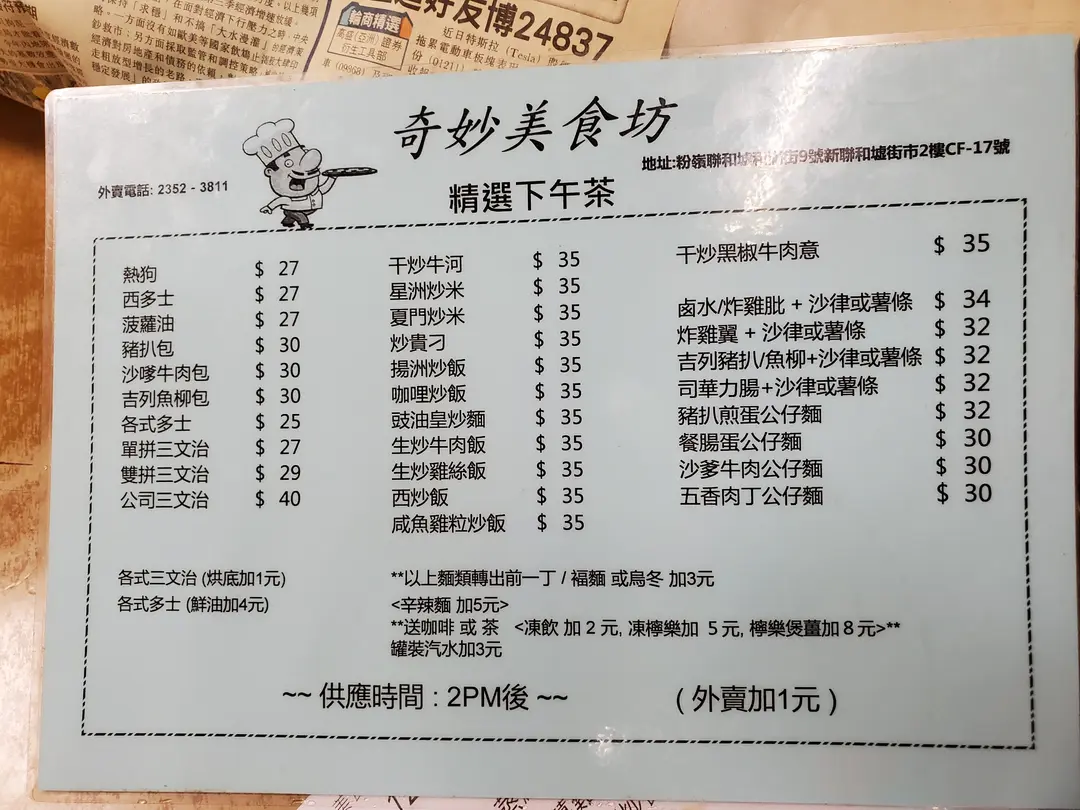 好友博24837
輪商精選
高盛(亞洲)證券
衍生工具部
近日特斯拉 (Tesla)
拖累電動車板塊表現
奇妙美食坊
地址:粉嶺聯和墟 街9號新聯和墟街市2樓CF-17號
外賣電話: 2352 - 3811
精選下午茶
熱狗 $ 27
西多士 $ 27
菠蘿油 $ 27
豬扒包 $ 30
沙嗲牛肉包 $ 30
吉列魚柳包 $ 30
各式多士 $ 25
單拼三文治 $ 27
雙拼三文治 $ 29
公司三文治 $ 40
干炒牛河 $ 35
星洲炒米 $ 35
夏門炒米 $ 35
炒貴刁 $ 35
揚洲炒飯 $ 35
咖哩炒飯 $ 35
豉油皇炒麵 $ 35
生炒牛肉飯 $ 35
生炒雞絲飯 $ 35
西炒飯 $ 35
咸魚雞粒炒飯 $ 35
干炒黑椒牛肉意 $ 35
鹵水/炸雞肶 + 沙律或薯條 $ 34
炸雞翼 + 沙律或薯條 $ 32
吉列豬扒/魚柳+沙律或薯條 $ 32
司華力腸+沙律或薯條 $ 32
豬扒煎蛋公仔麵 $ 32
餐腸蛋公仔麵 $ 30
沙爹牛肉公仔麵 $ 30
五香肉丁公仔麵 $ 30
各式三文治 (烘底加1元)
各式多士 (鮮油加4元)
**以上麵類轉出前一丁 / 福麵 或烏冬 加3元
<辛辣麵 加5元>
**送咖啡 或 茶 <凍飲 加 2 元, 凍檸樂加 5 元, 檸樂煲薑加 8 元>**
罐裝汽水加3元
~~ 供應時間 : 2PM後 ~~ ( 外賣加1元 )